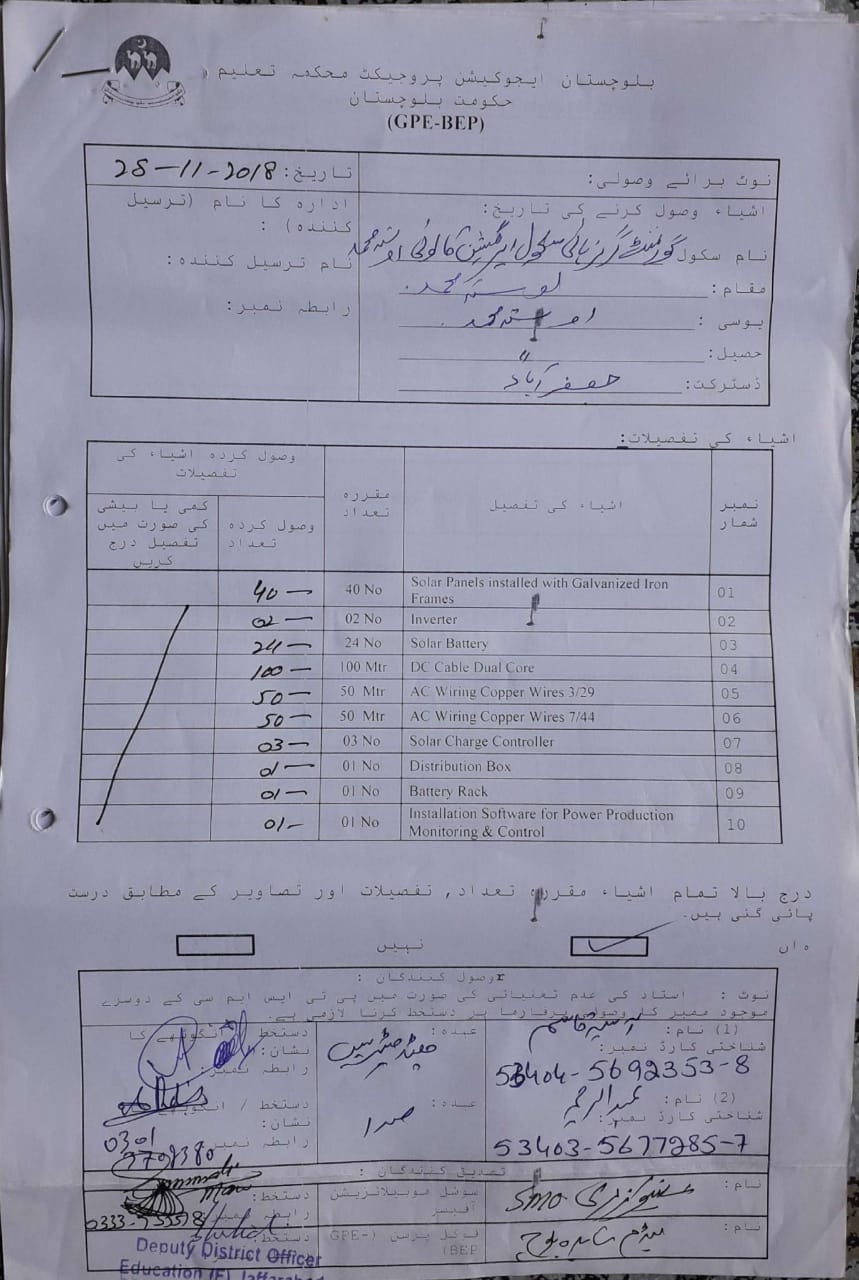 بلوچستان ایجوکیشن پروجیکٹ محکمہ تعلیم
حکومت بلوچستان
(GPE-BEP)
نوٹ برائے وصولی:
تاریخ: 28-11-2018
اشیاء وصول کرنے کی تاریخ:
ادارہ کا نام (ترسیل کنندہ):
نام سکول گورنمنٹ گرلز ہائی سکول ایریگیشن کالونی اوستہ محمد
نام ترسیل کنندہ:
مقام: اوستہ محمد
رابطہ نمبر:
یوسی: اوستہ محمد
حصیل: "
ڈسٹرکٹ: جعفرآباد
اشیاء کی تفصیلات:
نمبر شمار
اشیاء کی تفصیل
مقررہ تعداد
وصول کردہ اشیاء کی تفصیلات
وصول کردہ تعداد
کمی یا بیشی کی صورت میں تفصیل درج کریں
01 Solar Panels installed with Galvanized Iron Frames 40 No 40 —
02 Inverter 02 No 02 —
03 Solar Battery 24 No 24 —
04 DC Cable Dual Core 100 Mtr 100 —
05 AC Wiring Copper Wires 3/29 50 Mtr 50 —
06 AC Wiring Copper Wires 7/44 50 Mtr 50 —
07 Solar Charge Controller 03 No 03 —
08 Distribution Box 01 No 01 —
09 Battery Rack 01 No 01 —
10 Installation Software for Power Production Monitoring & Control 01 No 01 -
درج بالا تمام اشیاء مقررہ تعداد, تفصیلات اور تصاویر کے مطابق درست
پائی گئی ہیں.
ہاں ✓ نہیں
وصول کنندگان :
نوٹ : استاد کی عدم تعیناتی کی صورت میں پی ٹی ایس ایم سی کے دوسرے
موجود ممبر کا وصولی فارما پر دستخط کرنا لازمی ہے.
(1) نام: آسیہ قاسم
عہدہ: ہیڈ مسٹریس
دستخط انگوٹھے کا نشان:
شناختی کارڈ نمبر:
53404-5692353-8
رابطہ نمبر:
(2) نام: عبدالرحیم
عہدہ: صدر
دستخط / انگوٹھے کا نشان:
شناختی کارڈ نمبر:
53403-5677285-7
رابطہ نمبر: 0301
تصدیق کنندگان :
نام: SMO
سوشل موبیلائزیشن آفیسر
دستخط:
رابطہ نمبر:
نام:
فوکل پرسن (GPE-BEP)
دستخط:
Deputy District Officer
Education (F) Jaffarabad